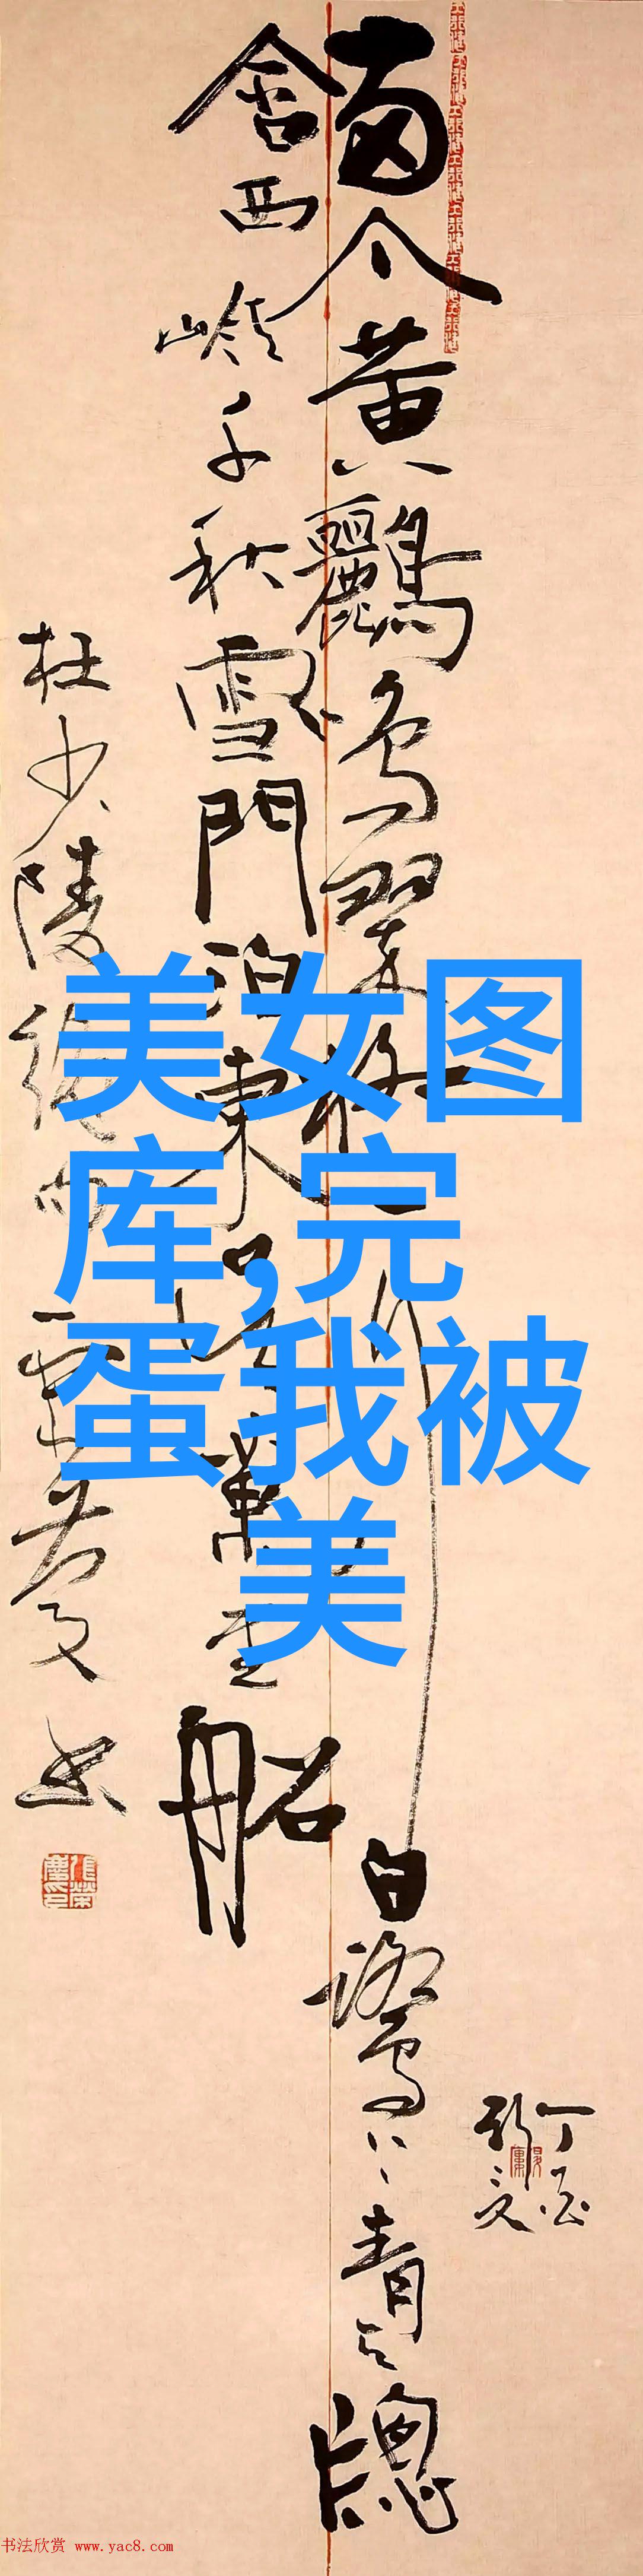 兩个黃鸝鳴翠柳一行白鷺上青天牕
含西嶺千秋雪門泊東吳萬里船
杜少陵絶句
美女图
库,完
蛋我被
美
书法欣赏 www.yac8.com